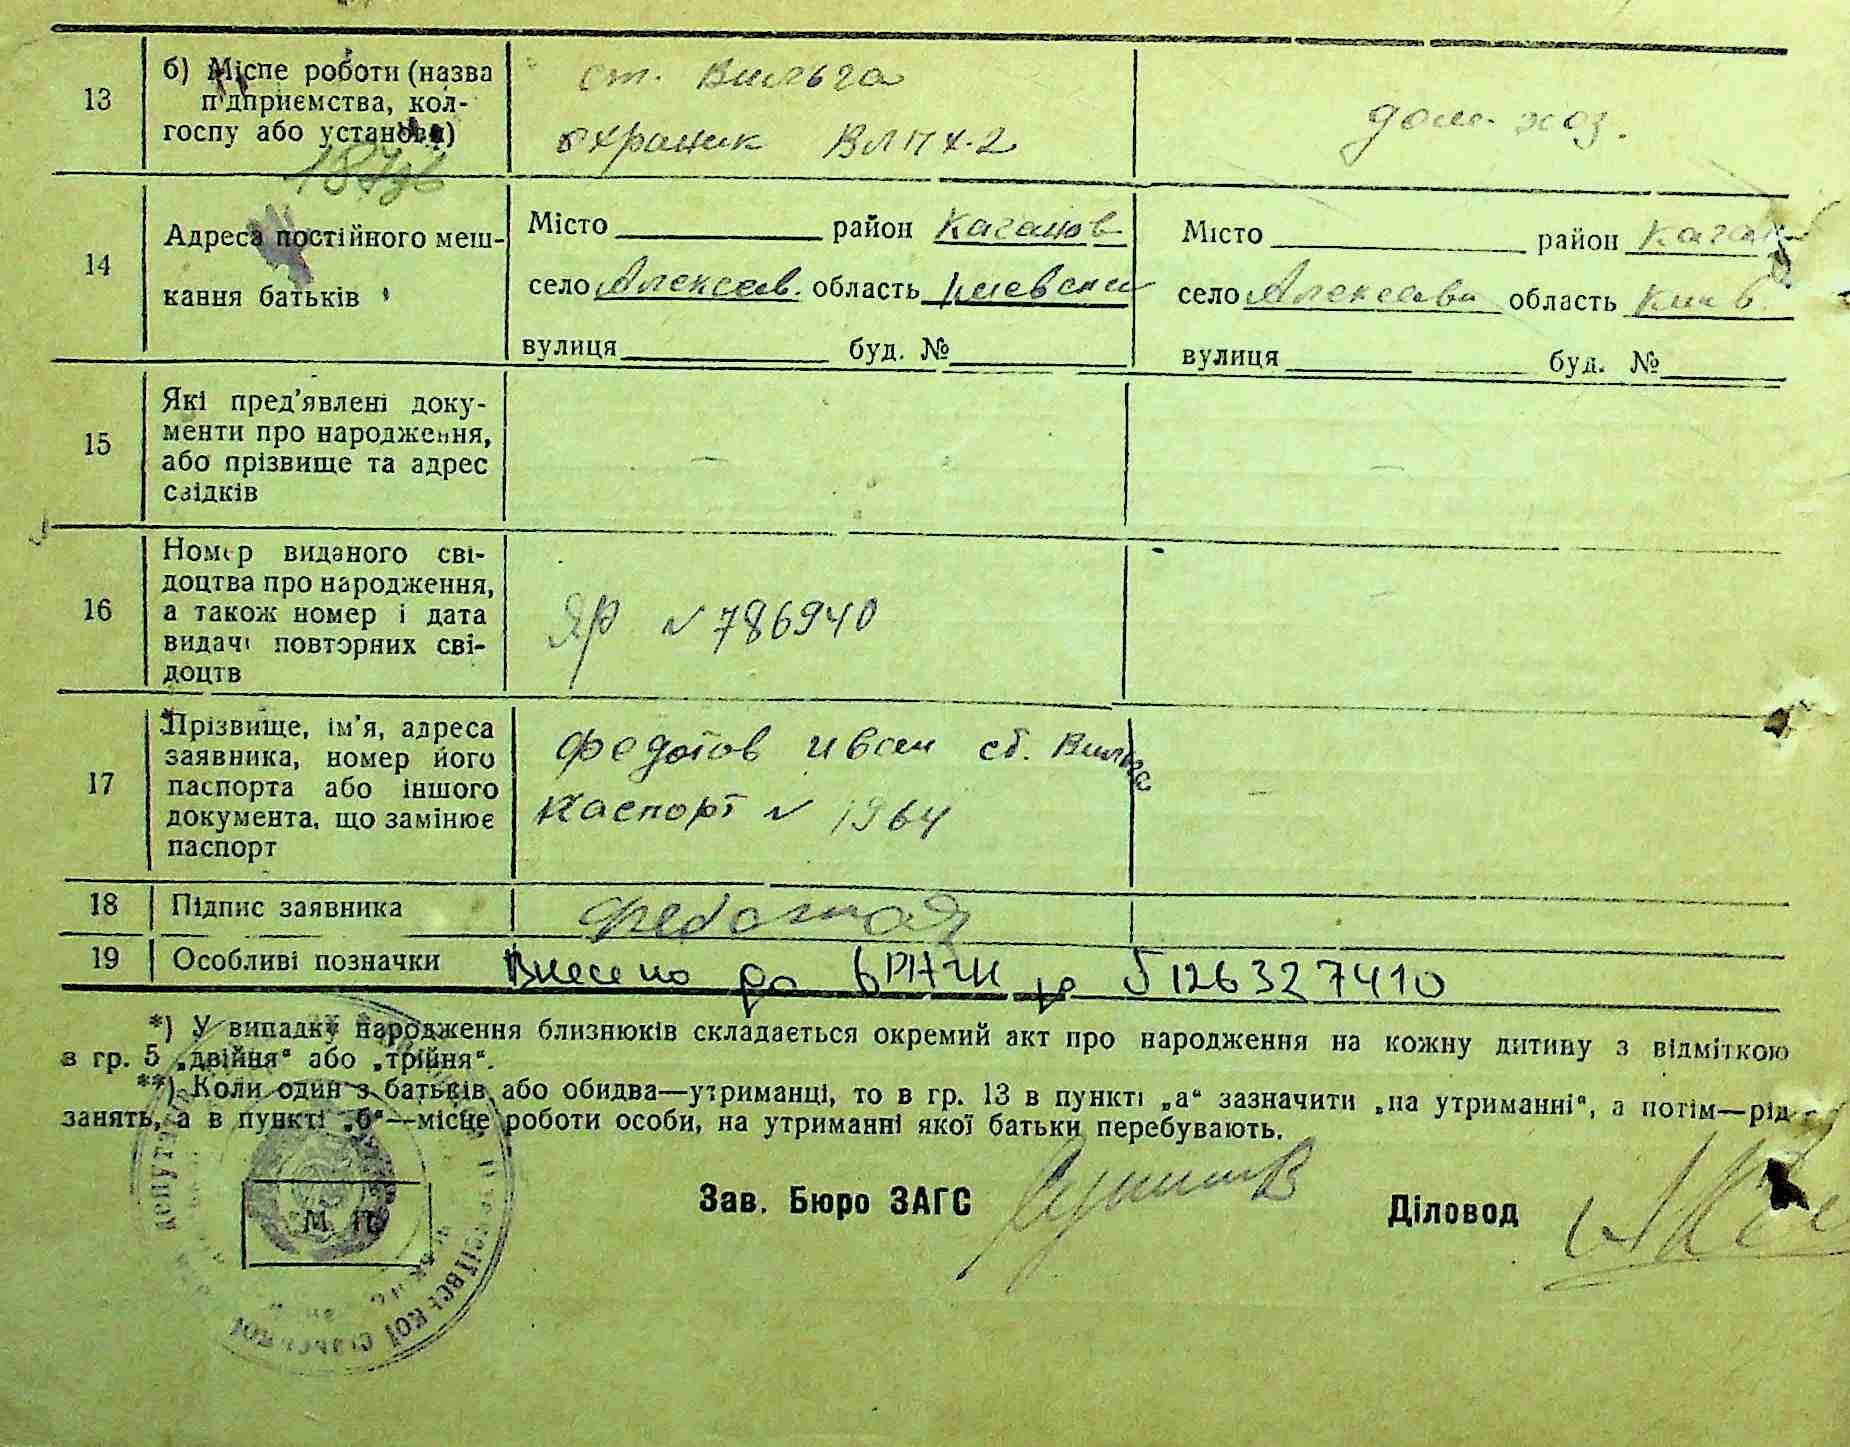 13
б) Місце роботи (назва
підприємства, кол-
госпу або установи)
ст. Вильга
охраник ВЛПХ-2
дом. хоз.
14
Адреса постійного меш-
кання батьків
Місто район Каганов
село Алексеев. область Киевская
вулиця буд. №
Місто район Каган
село Алексеевк область Киев.
вулиця буд. №
15
Які пред'явлені доку-
менти про народження,
або прізвище та адрес
свідків
16
Номер виданого сві-
доцтва про народження,
а також номер і дата
видачі повторних сві-
доцтв
ЯР № 786940
17
Прізвище, ім'я, адреса
заявника, номер його
паспорта або іншого
документа, що замінює
паспорт
Федотов Иван ст. Вильга
Паспорт № 1964
18
Підпис заявника
19
Особливі позначки
Внесено до
5126327410
*) У випадку народження близнюків складається окремий акт про народження на кожну дитину з відміткою
в гр. 5 „двійня“ або „трійня“.
**) Коли один з батьків або обидва—утриманці, то в гр. 13 в пункті „а“ зазначити „на утриманні“, а потім—рід
занять, а в пункті „б“—місце роботи особи, на утриманні якої батьки перебувають.
М. П.
Зав. Бюро ЗАГС
Діловод